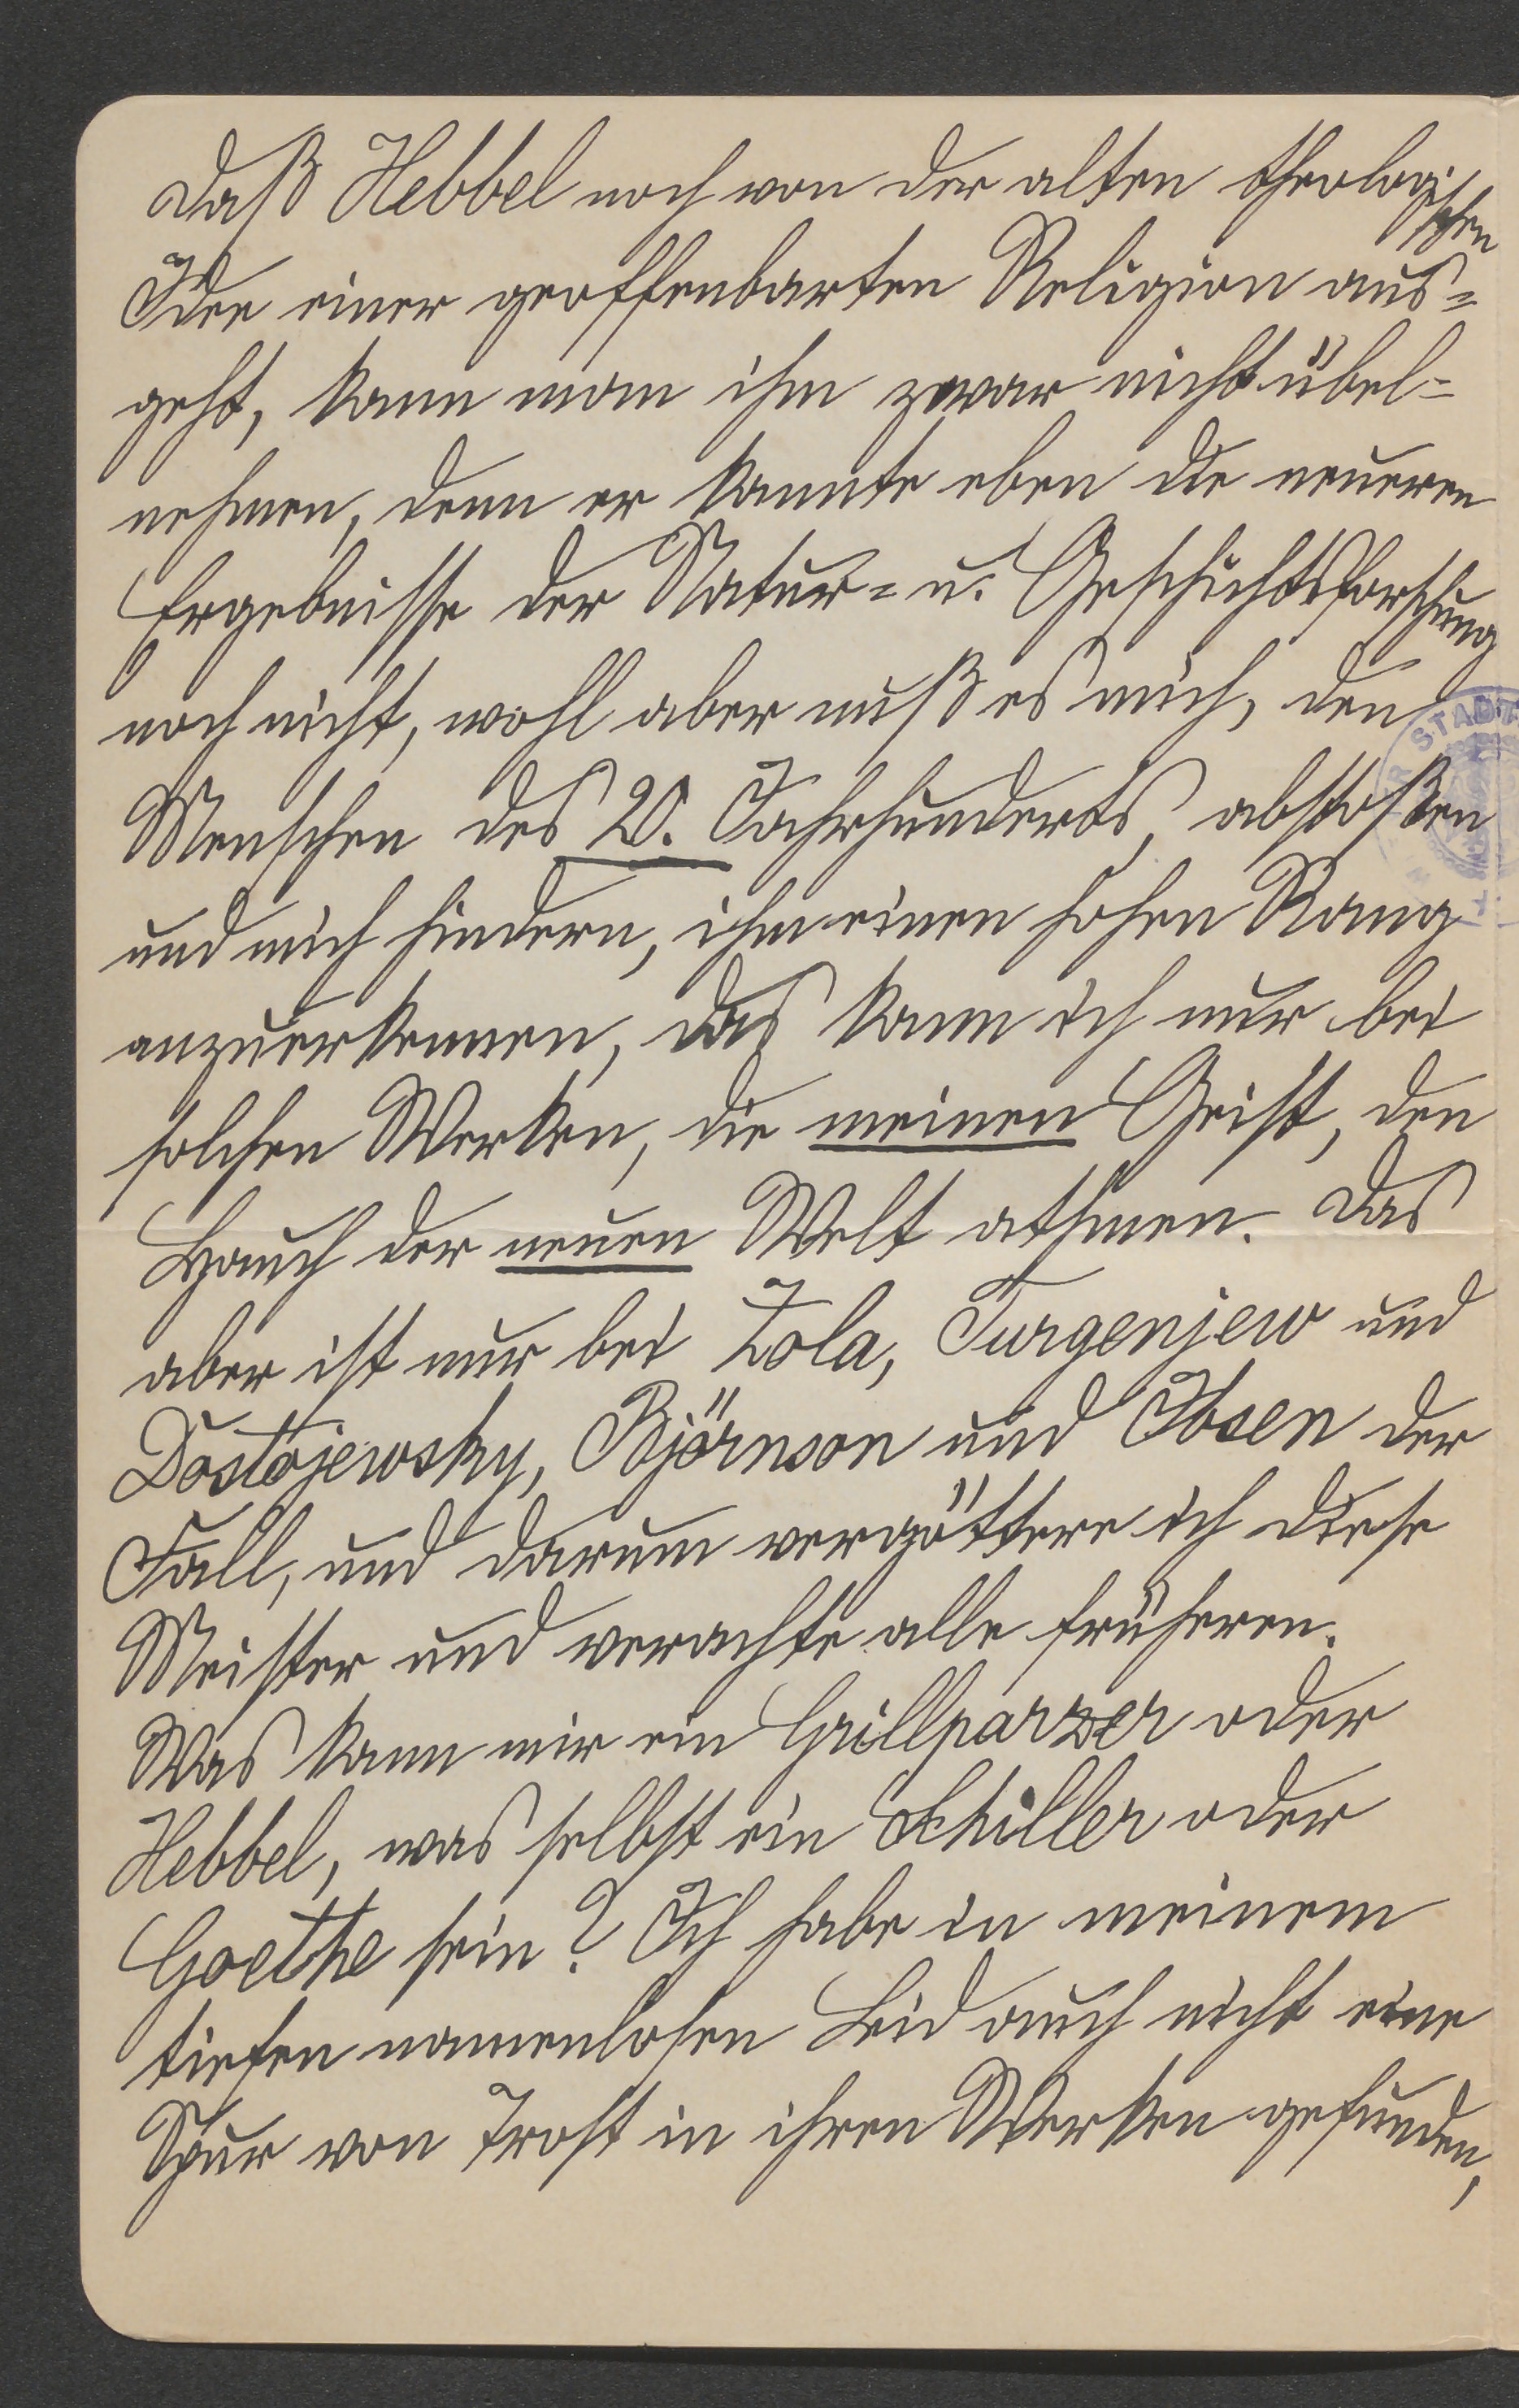 Daß Hebbel noch von der alten theologischen
Idee einer geoffenbarten Religion aus=
geht, kann man ihm zwar nicht übel=
nehmen, denn er kannte eben die neueren
Ergebnisse der Natur= u. Geschichtsforschung
noch nicht, wohl aber muß es mich, den
Menschen des 20. Jahrhunderts, abstoßen
und mich hindern, ihm einen hohen Rang
anzuerkennen, das kann ich nur bei
solchen Werken, die meinen Geist, den
Hauch der neuen Welt athmen. Das
aber ist nur bei Zola, Turgenjew und
Dostojewsky, Björnson und Ibsen der
Fall, und darum vergöttere ich diese
Meister und verachte alle früheren.
Was kann mir ein Grillparzer oder
Hebbel, was selbst ein Schiller oder
Goethe sein? Ich habe in meinem
tiefen namenlosen Leid auch nicht eine
Spur von Trost in ihren Werken gefunden,
STADT